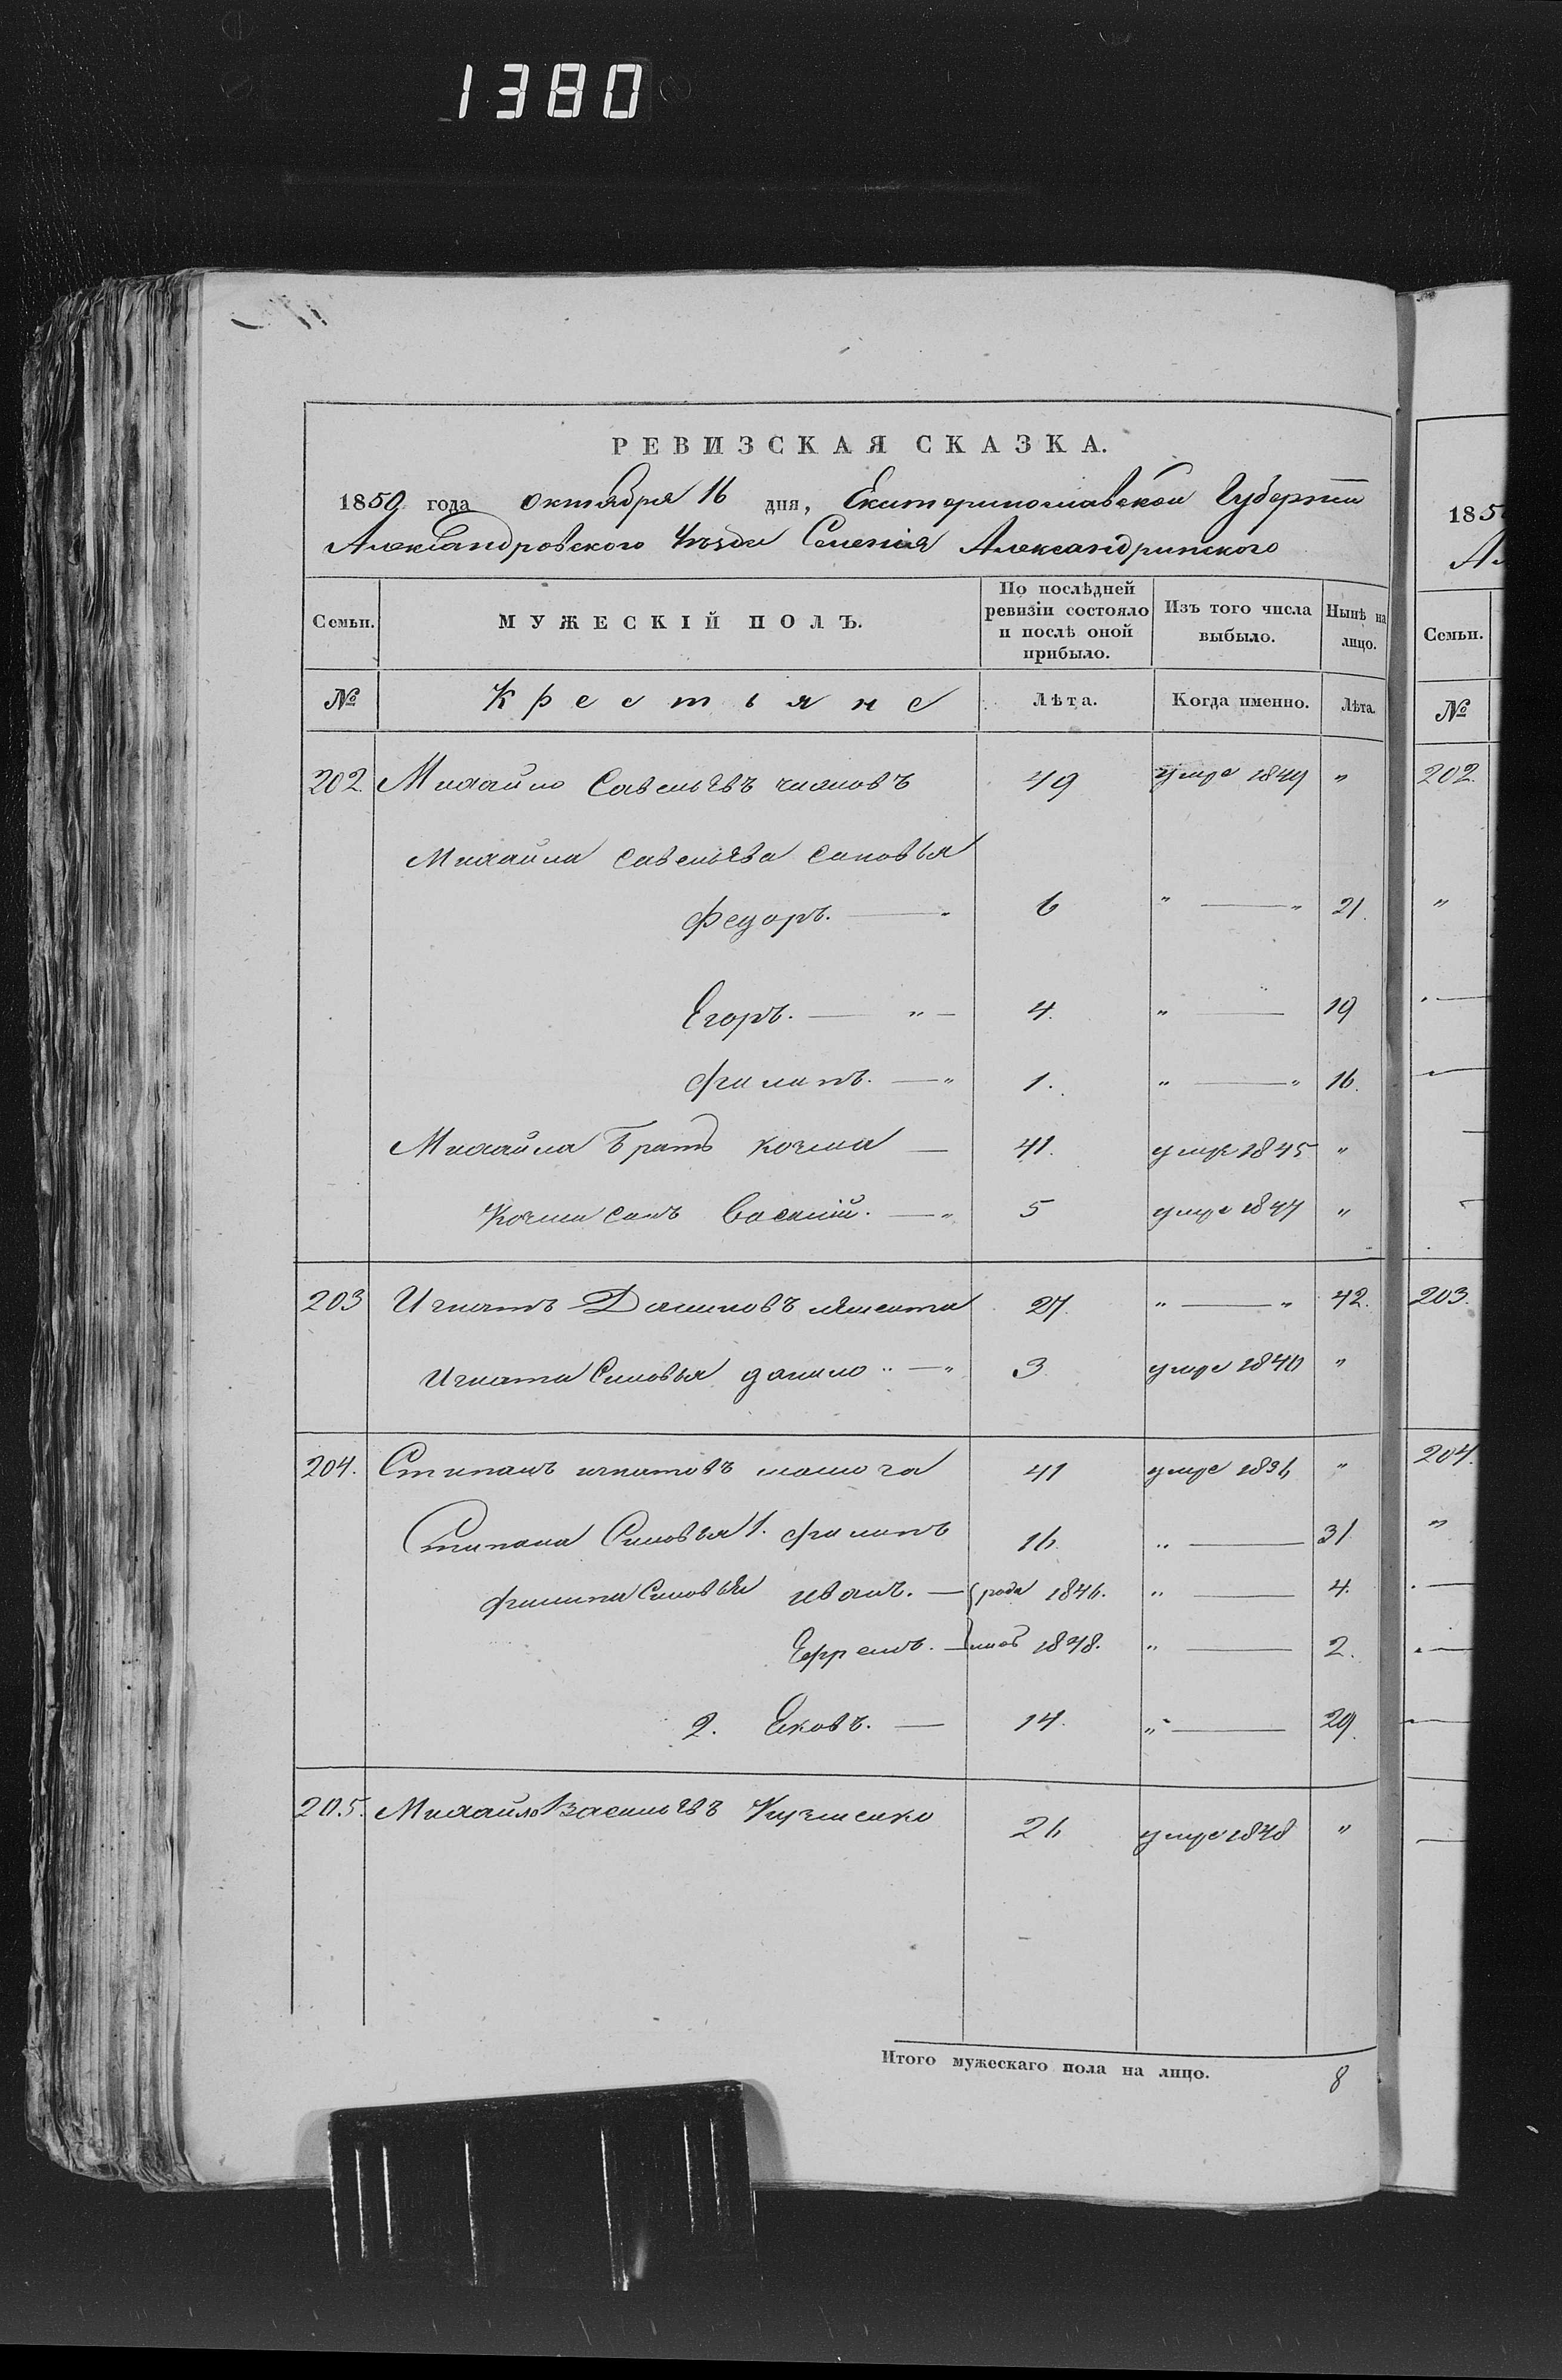 1380
РЕВИЗСКАЯ СКАЗКА.
1850 года октября 16 дня, Екатеринославской Губернии
Александровского Уѣзда Селенія Александринского
Семьи. МУЖЕСКІЙ ПОЛЪ. По послѣдней ревизіи состояло и послѣ оной прибыло. Изъ того числа выбыло. Нынѣ на лицо.
№ Крестьяне Лѣта. Когда именно. Лѣта.
202. Михайло Савельевъ 49 умре 1849 "
Михайла Савельева синовья
Федоръ. — " 6 " — " 21.
Егоръ. — " — 4. " — 19
Филипъ. — " 1. " — " 16.
Михайла братъ козма — 41. умре 1845 "
Козми синъ Василий. — " 5 умре 1847 "
203 Игнатъ Даниловъ 27. " — " 42.
Игната Синовья данило " — " 3 умре 1840 "
204. Стипанъ игнатовъ 41 умре 1836 "
Стипана Синовья 1. филипъ 16 " — 31
филипа Синовья иванъ. — рода 1846. " — 4.
Ефремъ. — 1848. " — 2.
2. Яковъ. — 14. " — 29.
205. Михайло Васильевъ Кузменко 26 умре 1848 "
Итого мужескаго пола на лицо. 8
185
Семьи.
№
202.
203.
204.